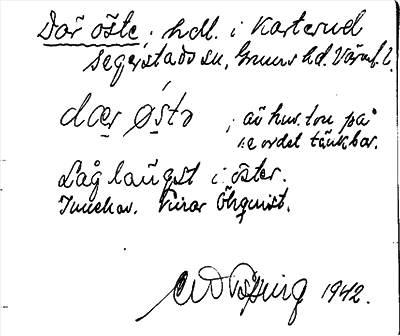 Där öste; hdl. i Karterud
Segerstads sn, Grums hd. Värml. l.
dær østə ; äv hus. ton på
se ordet tänkbar.
Låg längst i öster.
Innehav. Einar Öhquist.
1942.